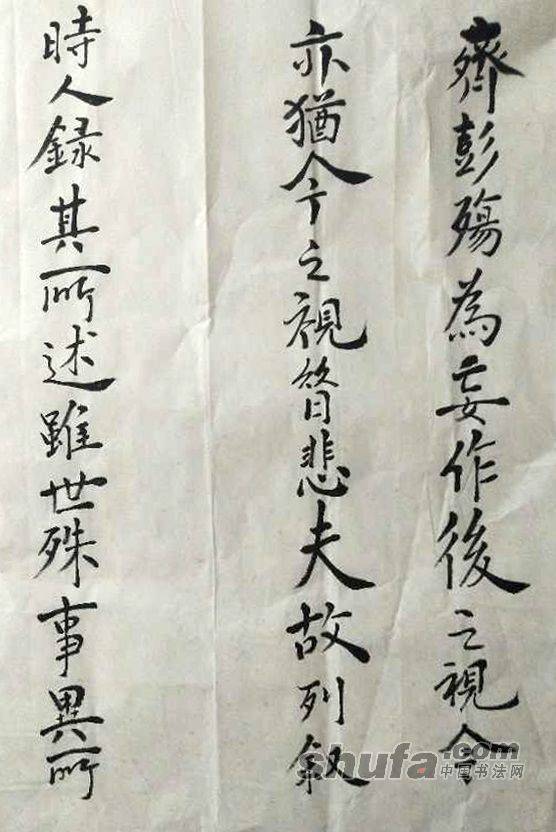 齊彭殤為妄作後之視今
亦猶今之視昔悲夫故列敘
時人錄其所述雖世殊事異所
shufa.com
中国书法网